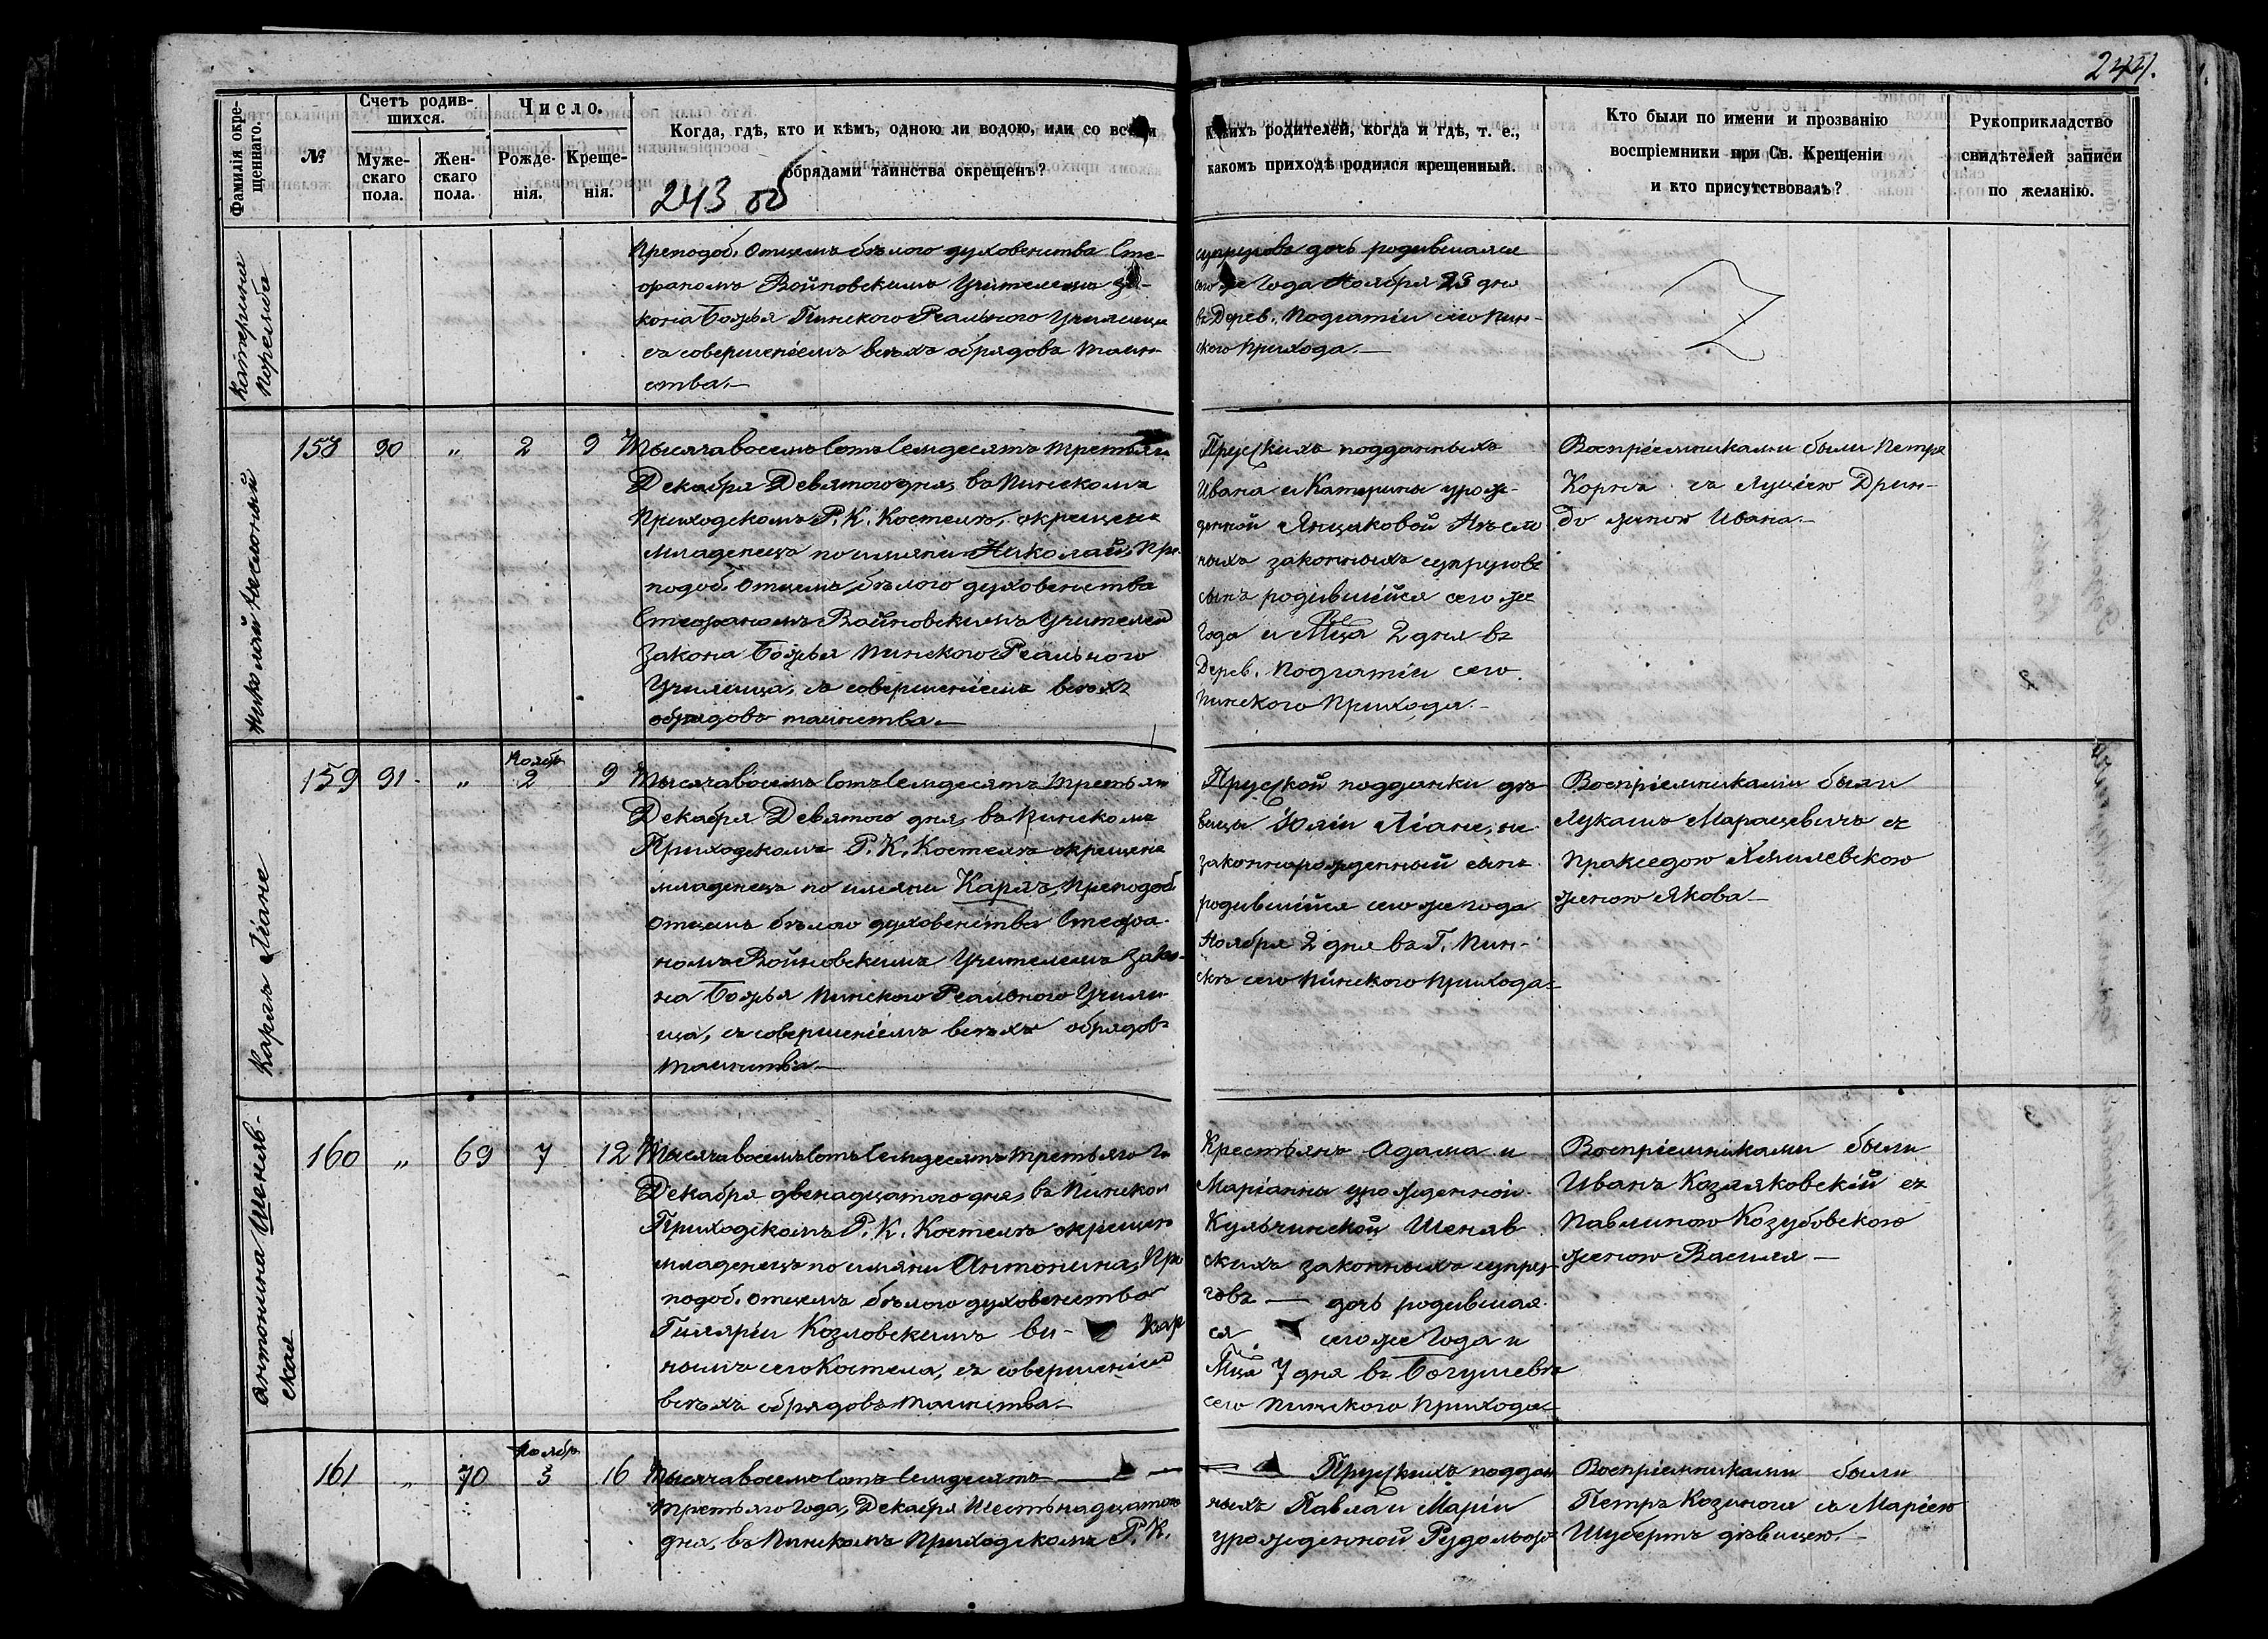 244.
Фамилія окре-
щеннаго.
№
Счетъ родив-
шихся.
Муже-
скаго
пола.
Жен-
скаго
пола.
Число.
Рожде-
нія.
Креще-
нія.
Когда, гдѣ, кто и кѣмъ, одною ли водою, или со всѣми
обрядами таинства окрещенъ?
243 об
Какихъ родителей, когда и гдѣ, т. е.,
какомъ приходѣ родился крещенный.
Кто были по имени и прозванію
воспріемники при Св. Крещеніи
и кто присутствовалъ?
Рукоприкладство
свидѣтелей записи
по желанію.
Катерина
Преподоб. Отцемъ бѣлого духовенства Сте-
фаномъ Войновскимъ Учителемъ За-
кона Божья Пинского Реального Училища
съ совершеніемъ всѣхъ обрядовъ таин-
ства.—
супруговъ дочь родившаяся
сего же Года Ноября 23 дня
въ Дерев. Подгатіи сего Пин-
ского Прихода.—
Николай
158 90 „ 2 9
Тысяча восемъ сотъ Семдесятъ третьяго
Декабря Девятого дня, въ Пинскомъ
Приходскомъ Р. К. Костелѣ, окрещенъ
младенецъ по имяни Николай, Пре-
подоб. Отцемъ бѣлого духовенства
Стефаномъ Войновскимъ Учителемъ
Закона Божья Пинского Реального
Училища, съ совершеніемъ всѣхъ
обрядовъ таинства.—
Прусскихъ подданныхъ
Ивана и Катерины урож-
денной Янцаковой
ныхъ законныхъ супруговъ
сынъ родившійся сего же
Года и Мца 2 дня въ
Дерев. Подгатіи сего
Пинского Прихода.—
Воспріемниками были Петръ
Корнъ съ Луціею Дрин-
до женою Ивана.—
Карлъ Ліане
159 91 „ Ноябр. 2 9
Тысяча восемъ сотъ Семдесятъ Третьяго
Декабря Девятого дня, въ Пинскомъ
Приходскомъ Р. К. Костелѣ окрещенъ
младенецъ по имяни Карлъ, Преподоб.
Отцемъ бѣлого духовенства Стефа-
номъ Войновскимъ Учителемъ Зако-
на Божья Пинского Реального Учили-
ща, съ совершеніемъ всѣхъ обрядовъ
таинства.—
Прусской подданки дѣ-
вицы Юліи Ліане, не-
законнорожденный сынъ
родившійся сего же года
Ноября 2 дня въ Г. Пин-
скѣ сего Пинского Прихода.—
Воспріемниками были
Лукашъ Марацевичъ съ
Пракседою
женою Якова.—
Антонина Шеняв-
ская
160 „ 69 7 12
Тысяча восемъ сотъ Семдесятъ третьяго Го
Декабря двенадцатого дня, въ Пинском
Приходскомъ Р. К. Костелѣ окрещен
младенецъ по имяни Антонина, Пре-
подоб. Отцемъ бѣлого духовенства
Гиляріи Козловскимъ ви- кар
нымъ сего Костела, съ совершеніем
всѣхъ обрядовъ таинства.—
Крестьянъ Адама и
Маріанны урожденной
Кульчинской Шеняв-
скихъ законныхъ супру-
говъ — дочь родившая-
ся сего же Года и
Мца 7 дня въ Богушевѣ
сего Пинского Прихода.—
Воспріемниками были
Иванъ Козляковскій съ
Павлиною Козубовскою
женою Василя —
161 „ 70 Ноябр. 3 16
Тысяча восемъ сотъ Семдесятъ —
третьяго Года, Декабря Шестьнадцатого
дня, въ Пинскомъ Приходскомъ Р. К.
Прусскихъ поддан-
ныхъ Павла и Маріи
урожденной Рудольф
Воспріемниками были
Петръ Козинога съ Маріею
Шубертъ дѣвицею.—